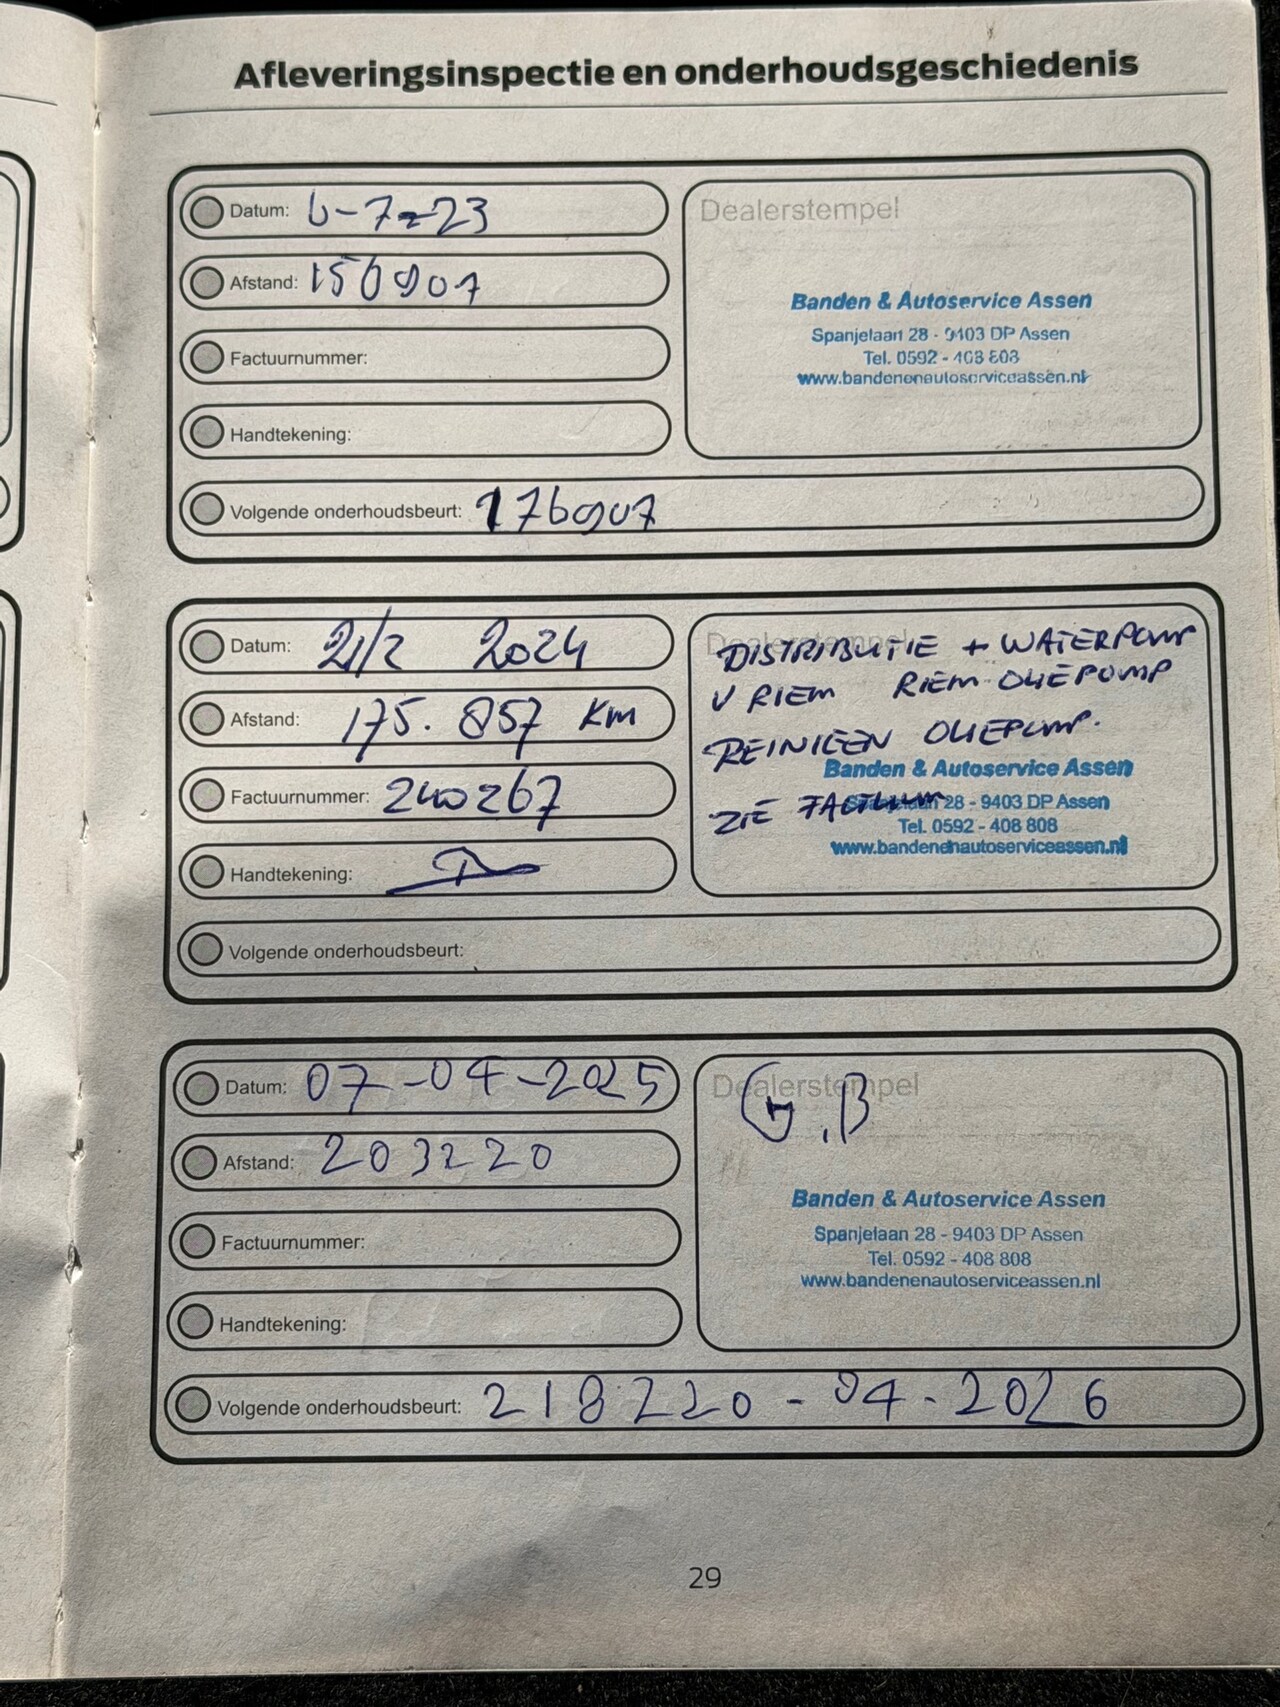 Afleveringsinspectie en onderhoudsgeschiedenis
Datum: 6-7-23
Afstand:
Factuurnummer:
Handtekening:
Volgende onderhoudsbeurt: 176907
Dealerstempel
Banden & Autoservice Assen
Spanjelaan 28 - 9403 DP Assen
Tel. 0592 - 408 808
www.bandenenautoserviceassen.nl
Datum: 21/2 2024
Afstand: 175.857 km
Factuurnummer: 240267
Handtekening:
Volgende onderhoudsbeurt:
Dealerstempel
DISTRIBUTIE + WATERPOMP
V RIEM RIEM OLIEPOMP
OLIEPOMP.
Banden & Autoservice Assen
ZIE FACTUUR
28 - 9403 DP Assen
Tel. 0592 - 408 808
www.bandenenautoserviceassen.nl
Datum: 07-04-2025
Afstand: 203220
Factuurnummer:
Handtekening:
Volgende onderhoudsbeurt: 218220 - 04 - 2026
Dealerstempel
G.B
Banden & Autoservice Assen
Spanjelaan 28 - 9403 DP Assen
Tel. 0592 - 408 808
www.bandenenautoserviceassen.nl
29